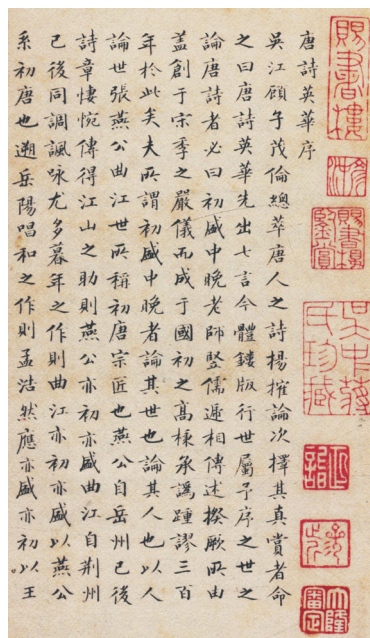 賜書樓
賜書樓
鑒賞
吳中蔣
氏珍藏
唐詩英華序
吳江顧子茂倫總萃唐人之詩揚搉論次擇其真賞者命
之曰唐詩英華先出七言今體鏤版行世屬予序之世之
論唐詩者必曰初盛中晚老師豎儒遞相傳述揆厥所由
蓋創于宋季之嚴儀而成于國初之高棅承譌踵謬三百
年於此矣夫所謂初盛中晚者論其世也論其人也以人
論世張燕公曲江世所稱初唐宗匠也燕公自岳州已後
詩章悽惋傳得江山之助則燕公亦初亦盛曲江自荊州
已後同調諷詠尤多暮年之作則曲江亦初亦盛以燕公
系初唐也遡岳陽唱和之作則孟浩然應亦盛亦初以王